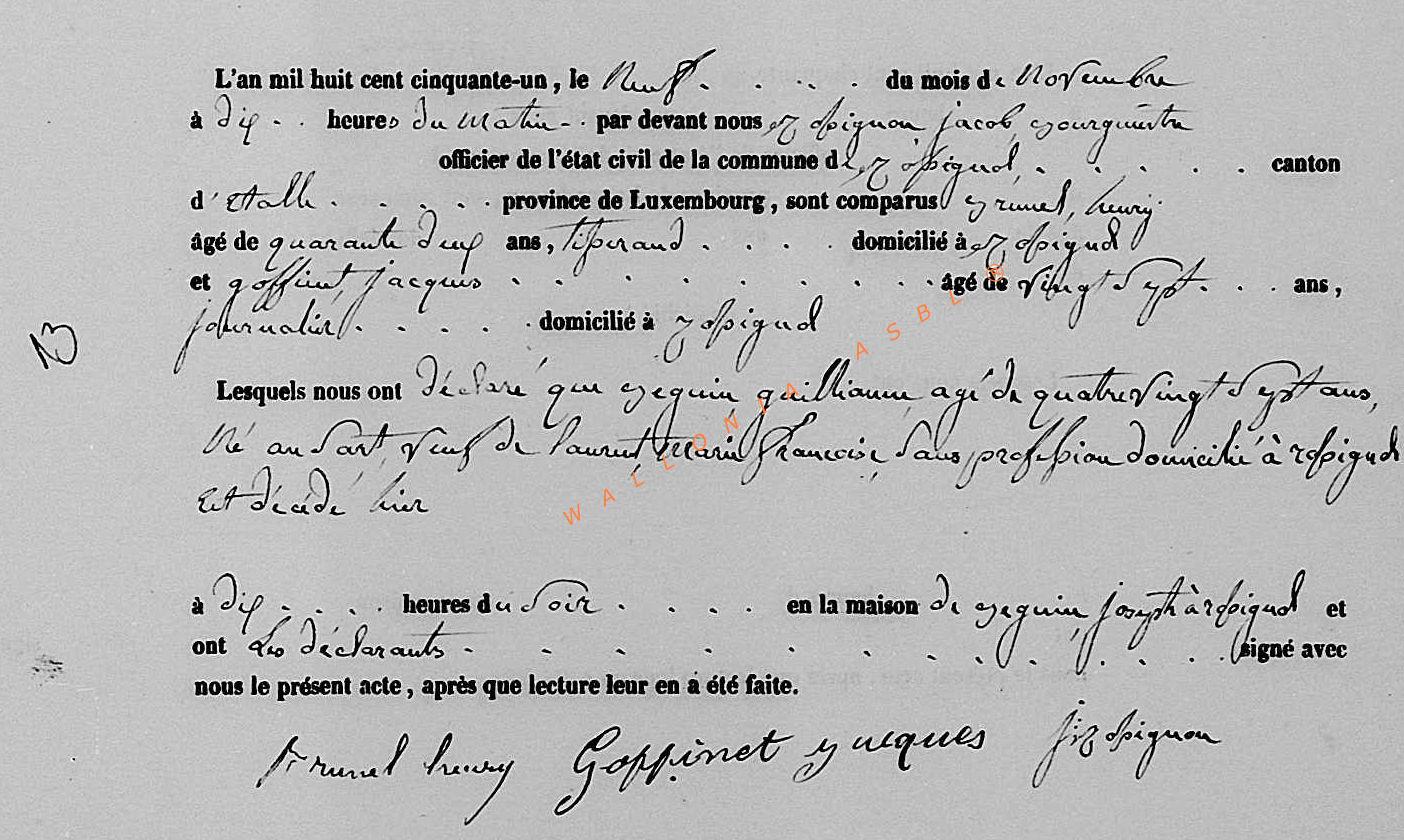 L'an mil huit cent cinquante-un, le Neuf . . . . du mois de Novembre
à dix . . heures du matin . . par devant nous Rossignon jacob, Bourguestre
officier de l'état civil de la commune de Rossignol, . . . . . canton
d'Etalle . . . . . province de Luxembourg, sont comparus Brunel, henry
âgé de quarante deux ans, tisserand . . . . domicilié à Rossignol
et goffinet, jacques . . . . . . . . . âgé de vingt sept . . . ans,
journalier . . . . . domicilié à Rossignol
13
Lesquels nous ont déclaré que Beguin, guilliaume, agé de quatrevingt sept ans,
Né au Sart, veuf de laurent, Marie françoise, sans profession domicilié à rossignol
Est décédé hier
à dix . . . . heures du soir . . . . en la maison de Beguin, joseph à rossignol et
ont Les déclarants . . . . . . . . . . signé avec
nous le présent acte, après que lecture leur en a été faite.
Brunel henry Goffinet jacques j: Rossignon
WALLONIA ASBL ®